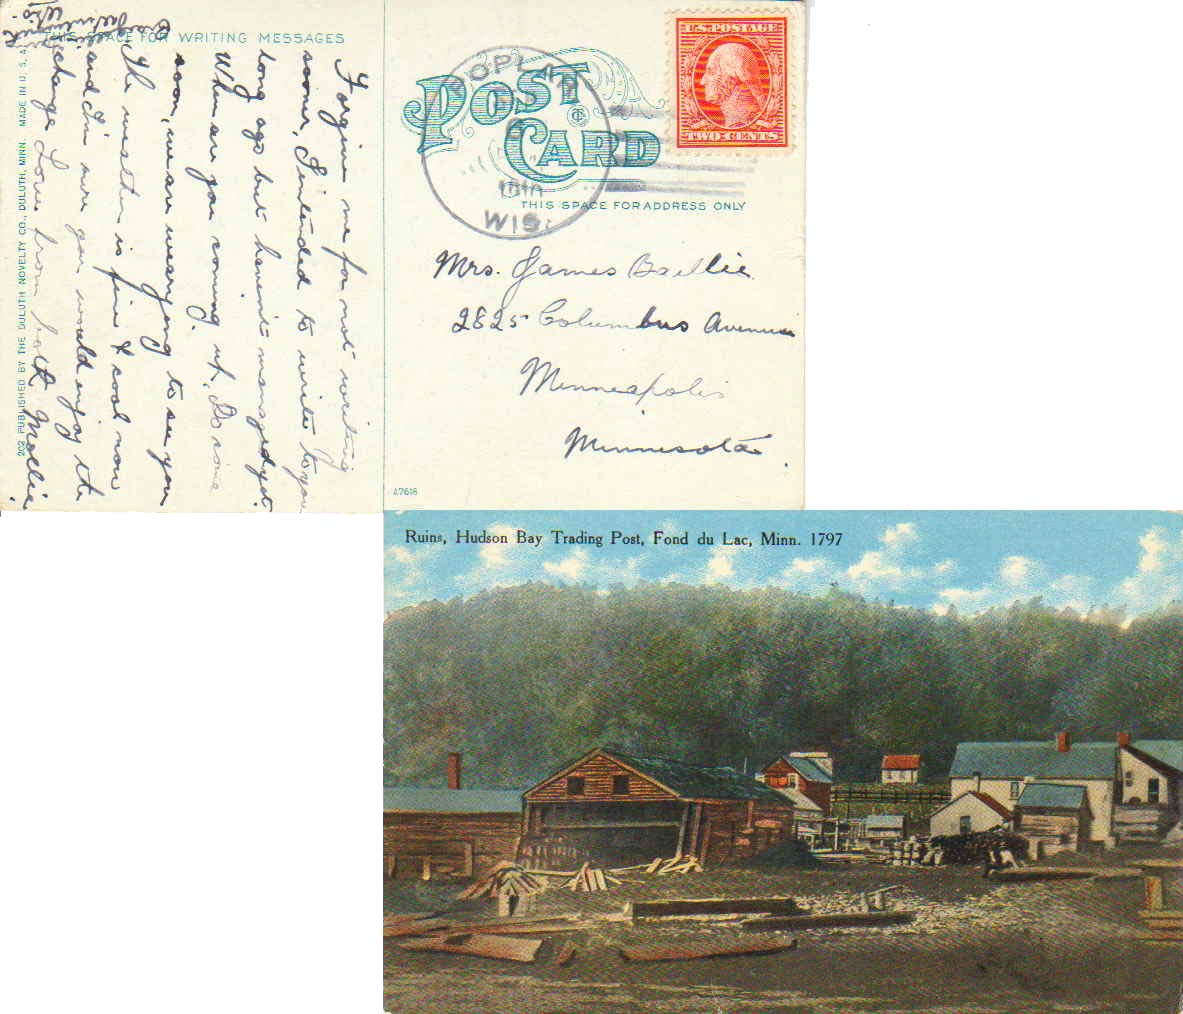 THIS SPACE FOR WRITING MESSAGES
Forgive me for not writing
sooner, I intended to write to you
long ago but haven't managed yet.
When are you coming up. Do come
soon, we are wearying to see you
The weather is fine & cool now
and I'm sure you would enjoy the
change. Love from both Mollie.
202 PUBLISHED BY THE DULUTH NOVELTY CO., DULUTH, MINN. MADE IN U. S. A.
POST CARD
THIS SPACE FOR ADDRESS ONLY
POPLAR
WIS.
U.S. POSTAGE
TWO CENTS
Mrs. James Baillie
2825 Columbus Avenue
Minneapolis
Minnesota.
A7616
Ruins, Hudson Bay Trading Post, Fond du Lac, Minn. 1797